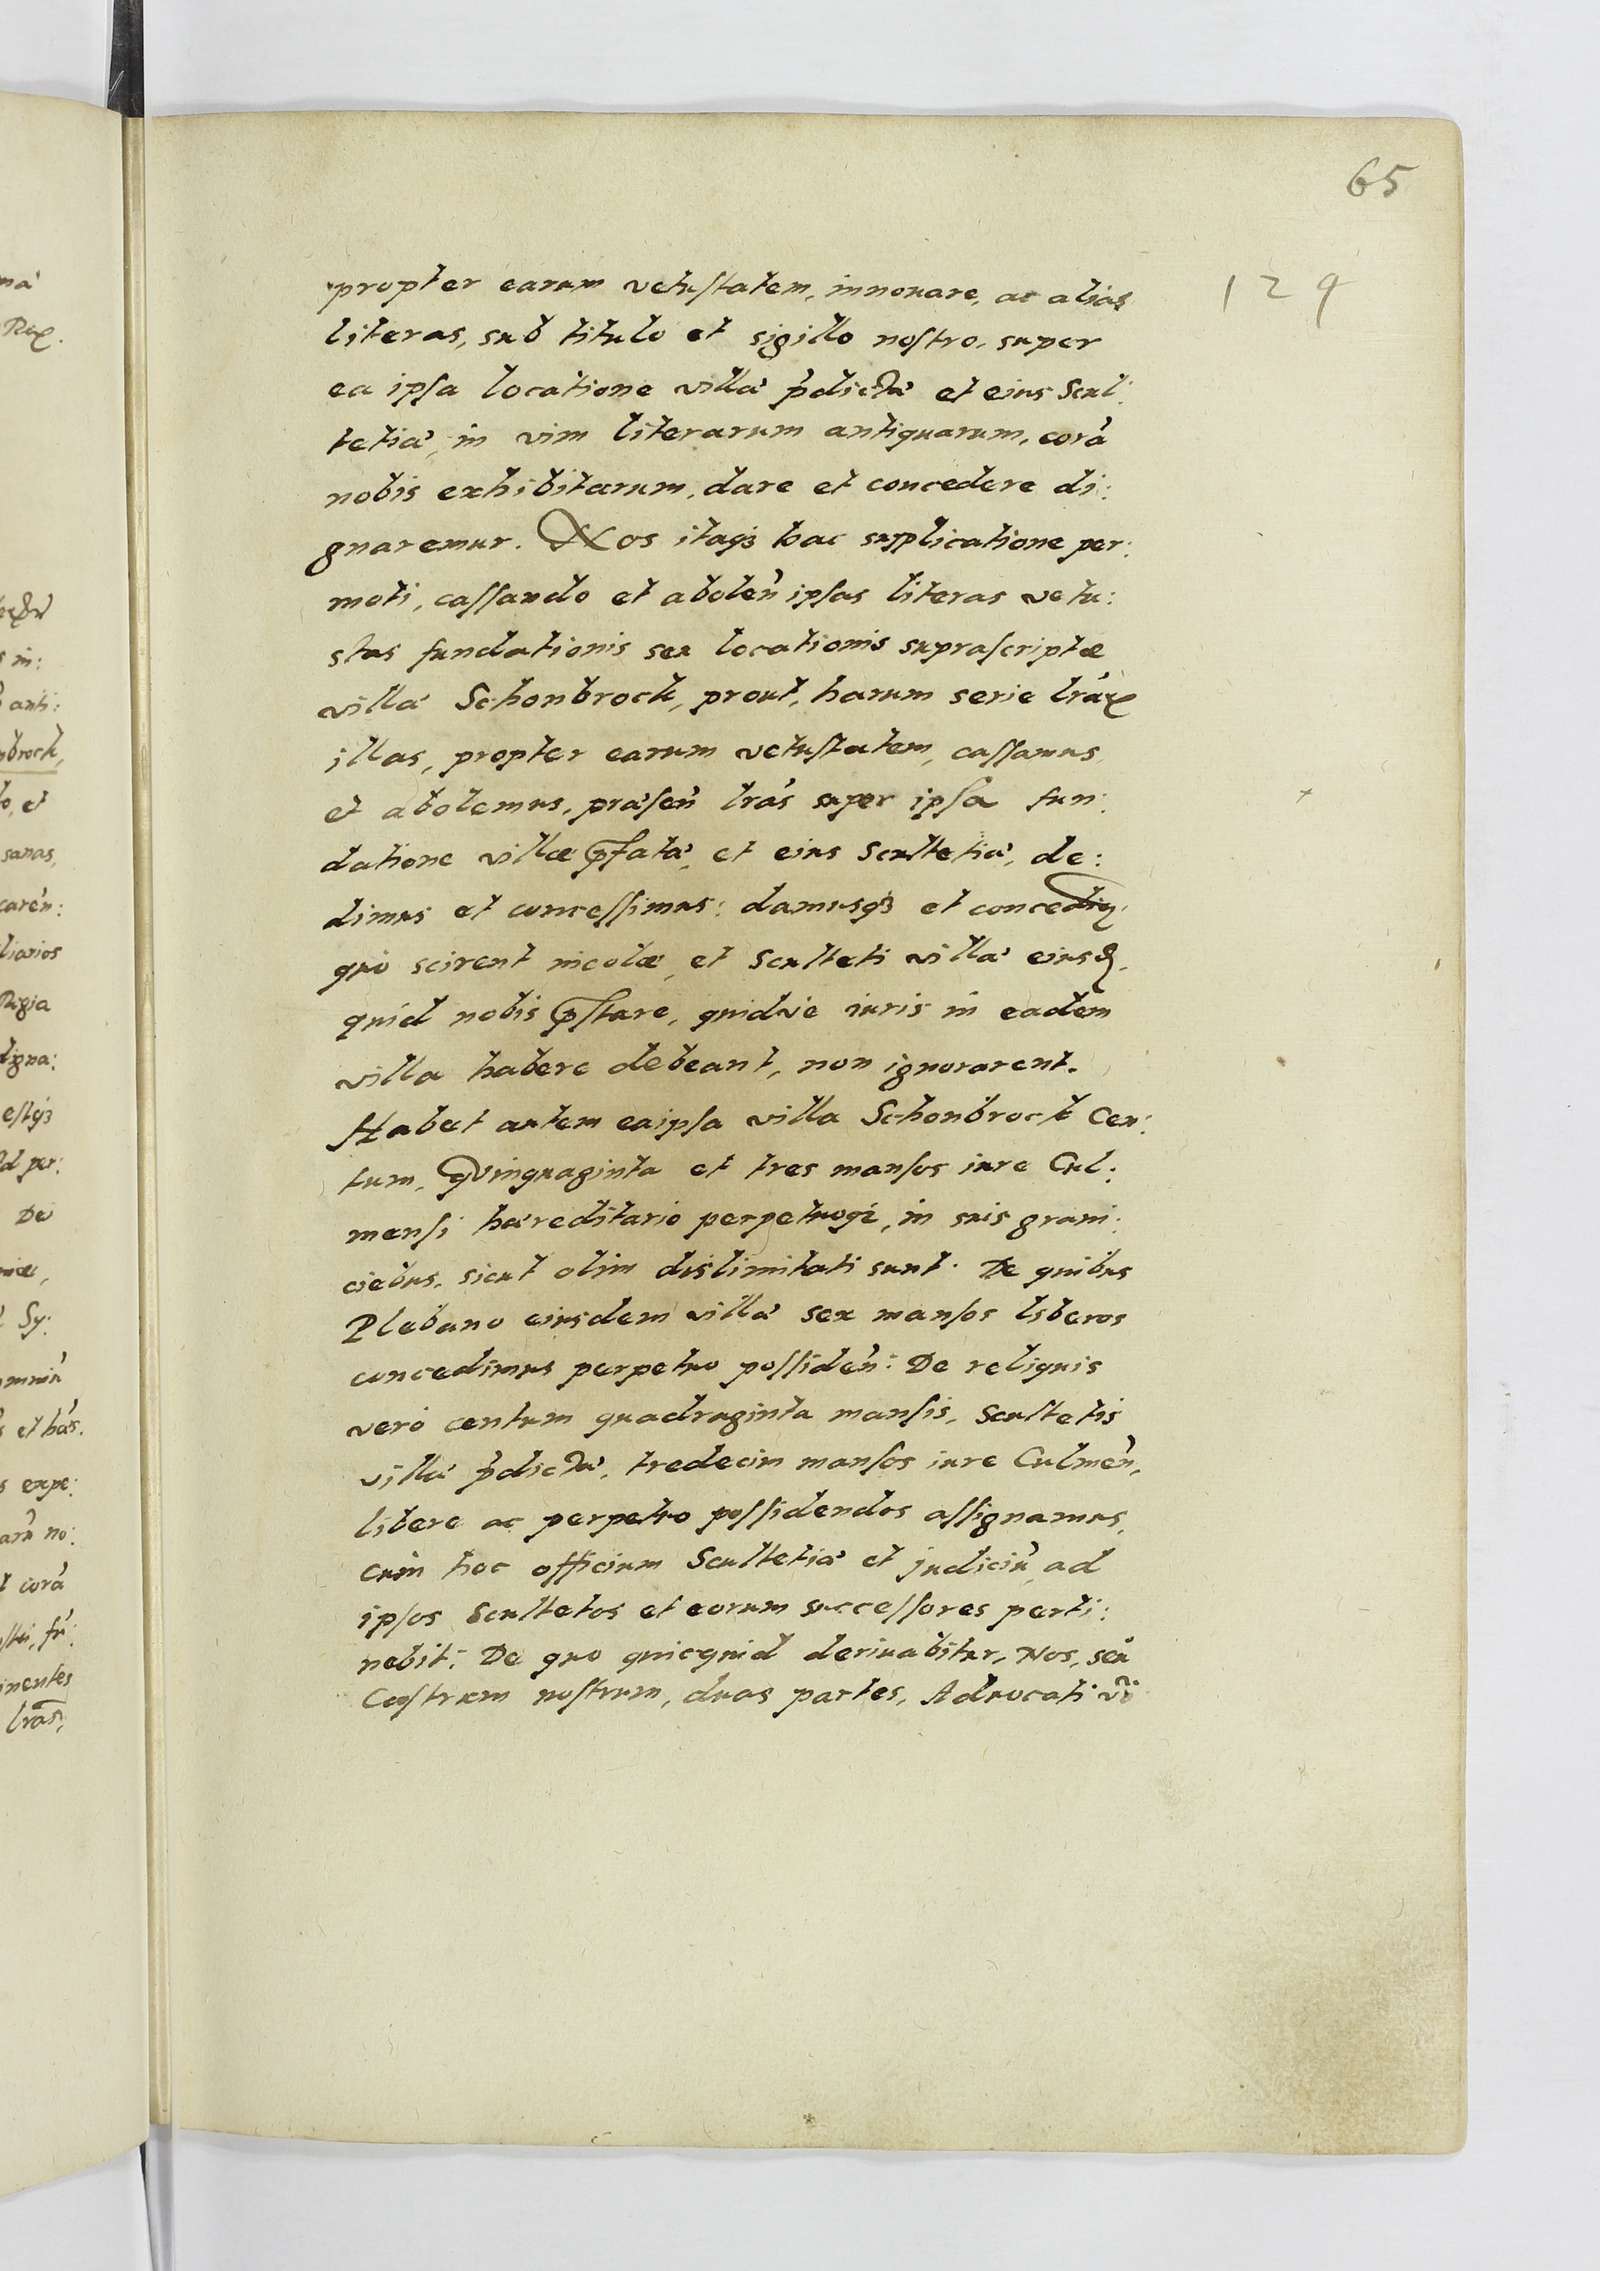 65
129
propter earum vetustatem, innouare, ac alias
literas, sub titulo et sigillo nostro, super
ea ipsa locatione villa' p'dicta' et eius Scul:
tetia', in vim literarum antiquarum, cora'
nobis exhibitarum, dare et concedere di:
gnaremur. Nos itaq3 hac supplicatione per:
moti, cassando et abolen' ipsas literas vetu:
stas fundationis seu locationis suprascriptæ
villa' Schonbrock, prout, harum serie lra'ꝝ
illas, propter earum vetustatem, cassamus
et abolemus, pra'sen' lra's super ipsa fun:
datione villæ p̄fata', et eius Scultetia', de:
dimus et concessimus: damusq3 et concedim9.
quo scirent incolæ, et Sculteti villa' eiusd.
quid nobis p̄stare, quidve iuris in eadem
villa habere debeant, non ignorarent.
Habet autem eaipsa villa Schonbrock Cen:
tum, Quinquaginta et tres mansos iure Cul:
mensi ha'reditario perpetuoq3, in suis grani:
ciebus, sicut olim dislimitati sunt. De quibus
Plebano eiusdem villa' sex mansos liberos
concedimus perpetuo possiden': De reliquis
vero centum quadraginta mansis, Scultetis
villa' p'dicta', tredecim mansos iure Culmen',
libere ac perpetuo possidendos assignamus,
cum hoc officium Scultetia' et judiciu', ad
ipsos Scultetos et eorum successores perti:
nebit: De quo quicquid deriuabitur, Nos, seu
Castrum nostrum, duas partes, Aduocati v'o